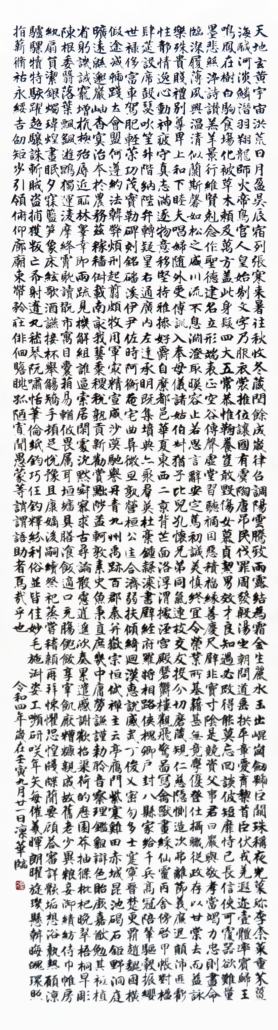 天地玄黃宇宙洪荒日月盈昃辰宿列張寒來暑往秋收冬藏閏餘成歲律召調陽雲騰致雨露結為霜金生麗水玉出崑岡劍號巨闕珠稱夜光果珍李柰菜重芥薑
海鹹河淡鱗潛羽翔龍師火帝鳥官人皇始制文字乃服衣裳推位讓國有虞陶唐弔民伐罪周發殷湯坐朝問道垂拱平章愛育黎首臣伏戎羌遐邇壹體率賓歸王
鳴鳳在樹白駒食場化被草木賴及萬方蓋此身髮四大五常恭惟鞠養豈敢毀傷女慕貞潔男效才良知過必改得能莫忘罔談彼短靡恃己長信使可覆器欲難量
墨悲絲染詩讚羔羊景行維賢剋念作聖德建名立形端表正空谷傳聲虛堂習聽禍因惡積福緣善慶尺璧非寶寸陰是競資父事君曰嚴與敬孝當竭力忠則盡命
臨深履薄夙興溫凊似蘭斯馨如松之盛川流不息淵澄取暎容止若思言辭安定篤初誠美慎終宜令榮業所基籍甚無竟學優登仕攝職從政存以甘棠去而益詠
樂殊貴賤禮別尊卑上和下睦夫唱婦隨外受傅訓入奉母儀諸姑伯叔猶子比兒孔懷兄弟同氣連枝交友投分切磨箴規仁慈隱惻造次弗離節義廉退顛沛匪虧
性靜情逸心動神疲守真志滿逐物意移堅持雅操好爵自縻都邑華夏東西二京背芒面洛浮渭據涇宮殿磐鬱樓觀飛驚圖寫禽獸畫綵仙靈丙舍傍啟甲帳對楹
肆筵設席鼓瑟吹笙升階納陛弁轉疑星右通廣內左達承明既集墳典亦聚群英杜稾鍾隸漆書壁經府羅將相路俠槐卿戶封八縣家給千兵高冠陪輦驅轂振纓
世祿侈富車駕肥輕策功茂實勒碑刻銘磻溪伊尹佐時阿衡奄宅曲阜微旦孰營桓公匡合濟弱扶傾綺迴漢惠說感武丁俊乂密勿多士寔寧晉楚更霸趙魏困橫
假途滅虢踐土會盟何遵約法韓弊煩刑起翦頗牧用軍最精宣威沙漠馳譽丹青九州禹跡百郡秦并嶽宗恒岱禪主云亭雁門紫塞雞田赤城昆池碣石鉅野洞庭
曠遠綿邈巖岫杳冥治本於農務茲稼穡俶載南畝我藝黍稷稅熟貢新勸賞黜陟孟軻敦素史魚秉直庶幾中庸勞謙謹勑聆音察理鑑貌辯色貽厥嘉猷勉其祗植
省躬譏誡寵增抗極殆辱近恥林皋幸即兩疏見機解組誰逼索居閑處沉默寂寥求古尋論散慮逍遙欣奏累遣慼謝歡招渠荷的歷園莽抽條枇杷晚翠梧桐早凋
陳根委翳落葉飄颻遊鵾獨運凌摩絳霄耽讀翫市寓目囊箱易輶攸畏屬耳垣牆具膳飡飯適口充腸飽飫享宰飢厭糟糠親戚故舊老少異糧妾御績紡侍巾帷房
紈扇圓潔銀燭煒煌晝眠夕寐藍筍象床絃歌酒讌接杯舉觴矯手頓足悅豫且康嫡後嗣續祭祀蒸嘗稽顙再拜悚懼恐惶牋牒簡要顧答審詳骸垢想浴執熱願涼
驢騾犢特駭躍超驤誅斬賊盜捕獲叛亡布射遼丸嵇琴阮嘯恬筆倫紙鈞巧任釣釋紛利俗並皆佳妙毛施淑姿工嚬妍咲年矢每催羲暉朗曜旋璣懸斡晦魄環照
指薪修祜永綏吉劭矩步引領俯仰廊廟束帶矜莊徘徊瞻眺孤陋寡聞愚蒙等誚謂語助者焉哉乎也
令和四年歲在壬寅九月廿一日涼華臨